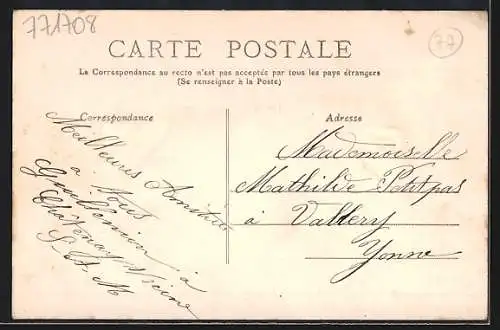 771708
77
CARTE POSTALE
La Correspondance au recto n'est pas acceptée par tous les pays étrangers
(Se renseigner à la Poste)
Correspondance
Meilleures Amitiés
à tous
à
S & M
Adresse
Mademoiselle
Mathilde Petitpas
à Vallery
Yonne